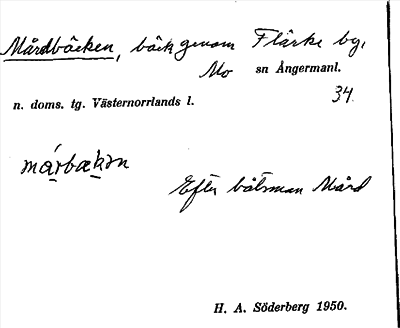 Mårdbäcken, bäck genom Flärke by,
Mo sn Ångermanl.
n. doms. tg. Västernorrlands l. 34.
Efter båtsman Mård
H. A. Söderberg 1950.